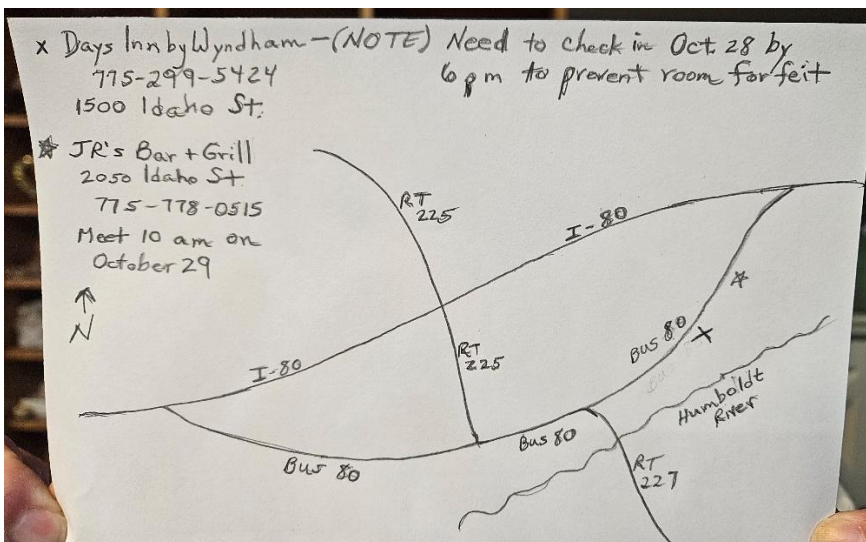 x Days Inn by Wyndham - (NOTE) Need to check in Oct. 28 by
6 pm to prevent room forfeit
775-299-5424
1500 Idaho St.
☆ JR's Bar + Grill
2050 Idaho St.
775-778-0515
Meet 10 am on
October 29
↑
N
RT
225
I-80
RT
225
I-80
Bus 80
☆
x
Bus 80
Bus 80
Humboldt
River
RT
227